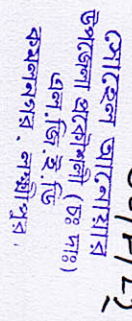 সোহেল আনোয়ার
উপজেলা প্রকৌশলী (চঃ দাঃ)
এল.জি.ই.ডি
কমলনগর, লক্ষ্মীপুর।